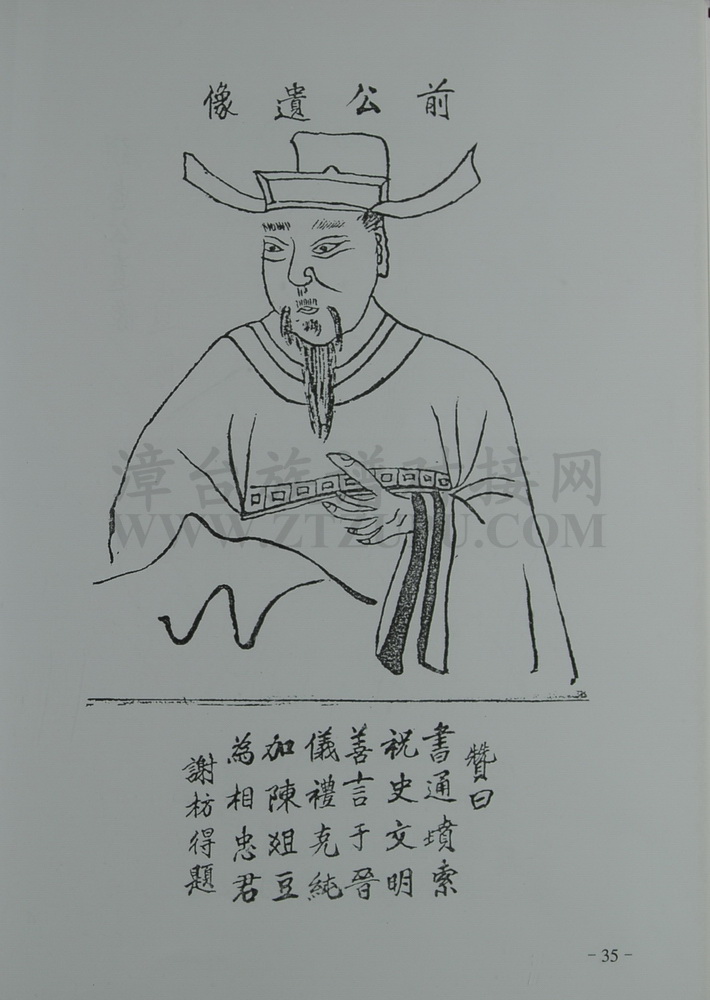 前公遺像
漳台族譜对接网
WWW.ZTZUPU.COM
贊曰
書通墳索
祝史文明
善言于晉
儀禮克純
加陳俎豆
為相忠君
謝枋得題
- 35 -